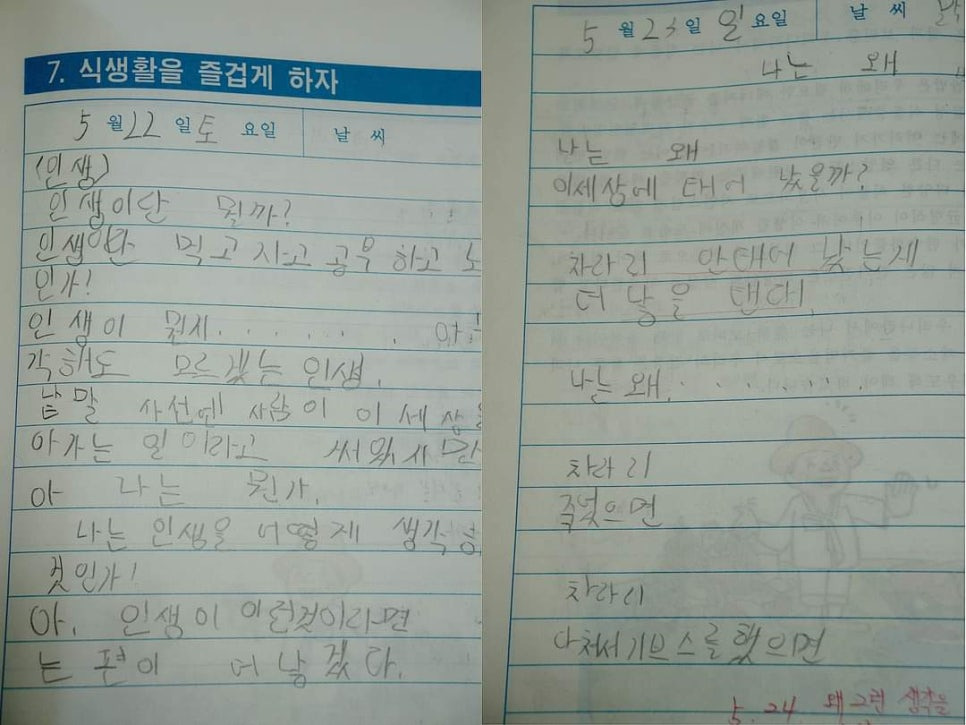 7. 식생활을 즐겁게 하자
5 월 22 일 토 요일 날 씨
(인생)
인생이란 뭘까?
인생이란 먹고 자고 공부 하고 노
인가!
인생이 뭔지. . . . . . . 아
각해도 모르겠는 인생.
낱말 사전엔 사람이 이 세상을
아가는 일이라고 써 있지만
아 나는 뭔가.
나는 인생을 어떻게 생각
것인가!
아. 인생이 이런것이라면
는 편이 더 낳겠다.
5 월 23 일 일 요일 날 씨
나는 왜
나는 왜
이세상에 태어 났을까?
차라리 안태어 낳는게
더 낳을 탠대!
나는 왜. . . . . . . . .
차라리
죽었으면
차라리
다쳐서 기브스를 했으면
5. 24 왜 그런 생각을